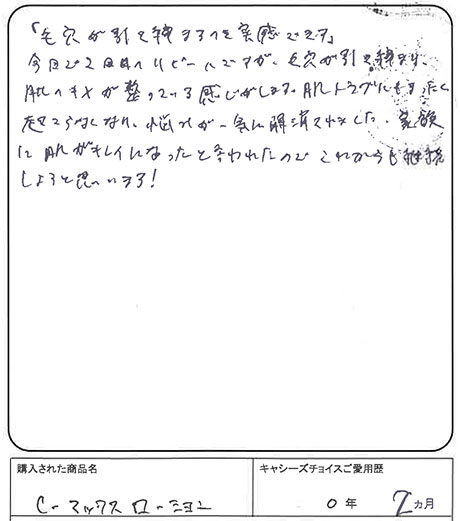 「毛穴が引き締まるのを実感できます」
今回で2回目のリピートですが、毛穴が引き締まり、
肌のキメが整っている感じがします。肌トラブルもまったく
起こらなくなり、悩みが一気に解消されました。家族
に肌がキレイになったと言われたので これからも継続
しようと思います!
購入された商品名
キャシーズチョイスご愛用歴
C-マックスローション
0年 2カ月